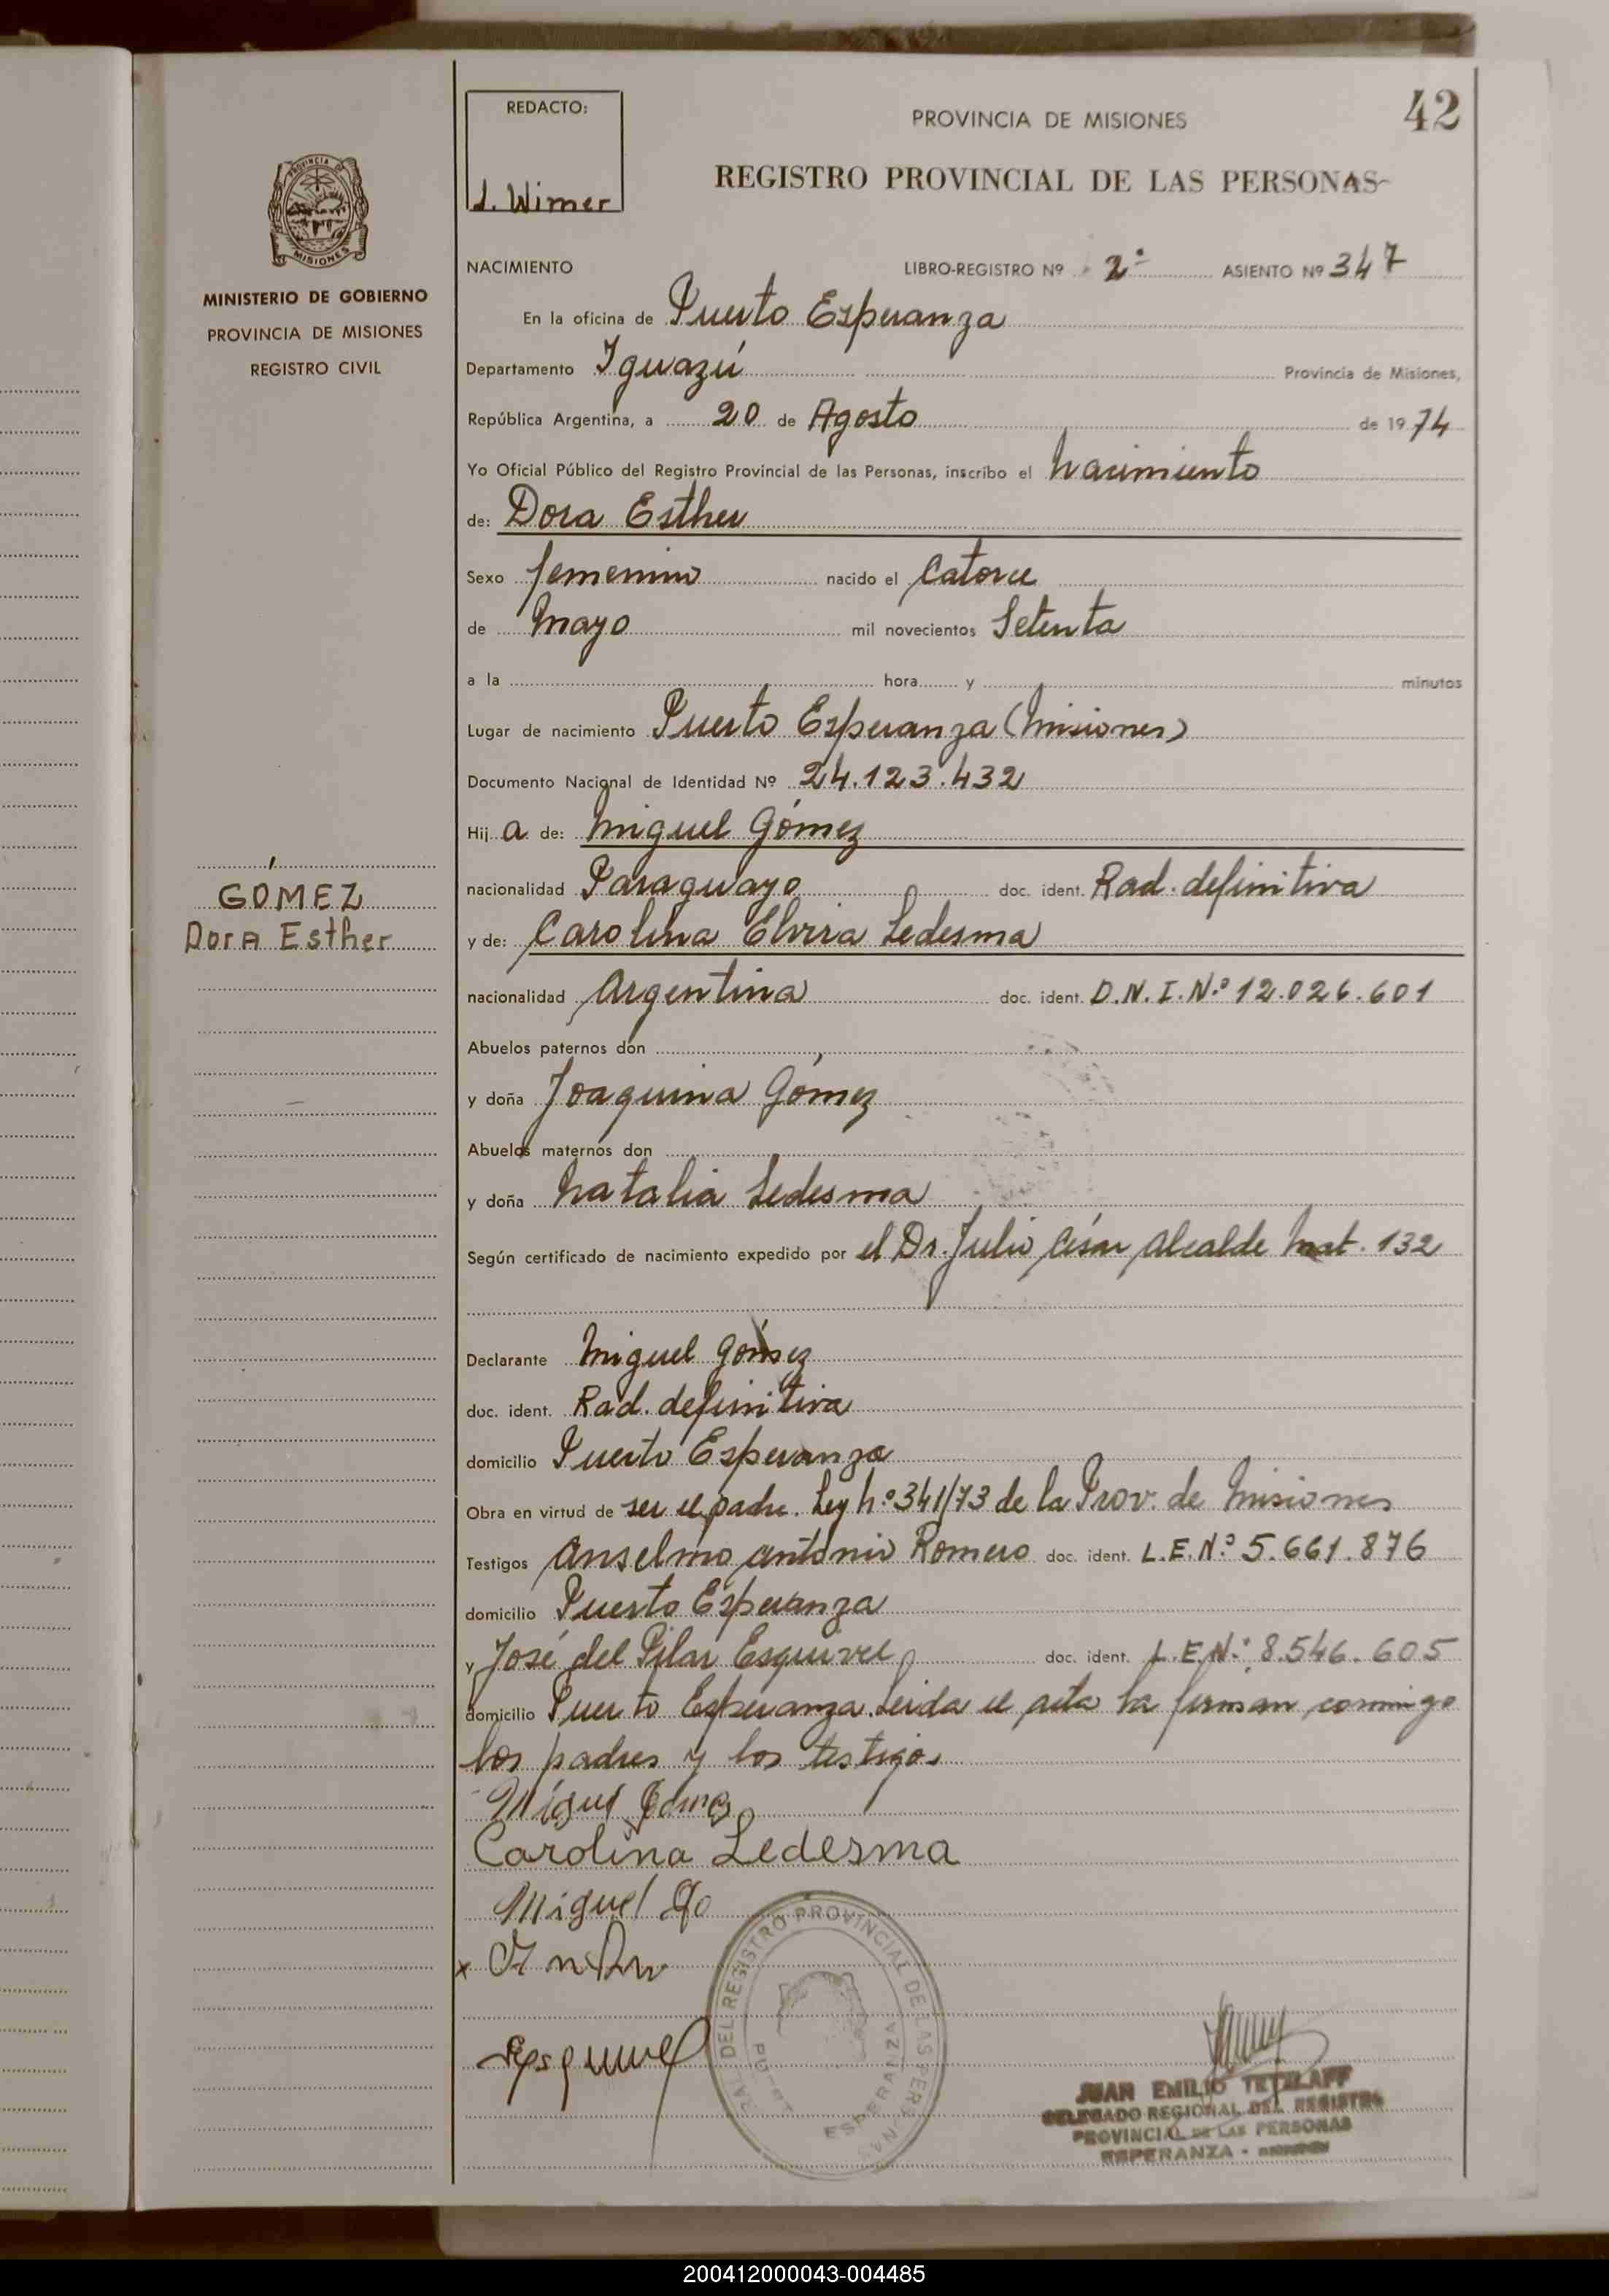 42
REDACTO:
L. Wimer
PROVINCIA DE MISIONES
REGISTRO PROVINCIAL DE LAS PERSONAS
PROVINCIA DE
MISIONES
MINISTERIO DE GOBIERNO
PROVINCIA DE MISIONES
REGISTRO CIVIL
NACIMIENTO LIBRO-REGISTRO Nº 2º ASIENTO Nº 347
En la oficina de Puerto Esperanza
Departamento Iguazú Provincia de Misiones,
República Argentina, a 20 de Agosto de 1974
Yo Oficial Público del Registro Provincial de las Personas, inscribo el Nacimiento
de: Dora Esther
Sexo femenino nacido el Catorce
de Mayo mil novecientos Setenta
a la hora y minutos
Lugar de nacimiento Puerto Esperanza (Misiones)
Documento Nacional de Identidad Nº 24.123.432
Hij a de: Miguel Gómez
nacionalidad Paraguayo doc. ident. Rad. definitiva
GÓMEZ
Dora Esther
y de: Carolina Elvira Ledesma
nacionalidad Argentina doc. ident. D.N.I.Nº 12.026.601
Abuelos paternos don
y doña Joaquina Gómez
Abuelos maternos don
y doña Natalia Ledesma
Según certificado de nacimiento expedido por el Dr. Julio César Alcalde Mat. 132
Declarante Miguel Gómez
doc. ident. Rad. definitiva
domicilio Puerto Esperanza
Obra en virtud de ser el padre. Ley Nº 341/73 de la Prov. de Misiones
Testigos Anselmo Antonio Romero doc. ident. L.E.Nº 5.661.876
domicilio Puerto Esperanza
y José del Pilar Esquivel doc. ident. L.E.Nº 8.546.605
domicilio Puerto Esperanza. Leída el acta la firman conmigo
los padres y los testigos
Miguel Gómez
Carolina Ledesma
Miguel Go
x
Esquivel
DEL REGISTRO PROVINCIAL DE LAS PERSONAS
ESPERANZA
JUAN EMILIO TETZLAFF
DELEGADO REGIONAL DEL REGISTRO
PROVINCIAL DE LAS PERSONAS
ESPERANZA - MISIONES
200412000043-004485